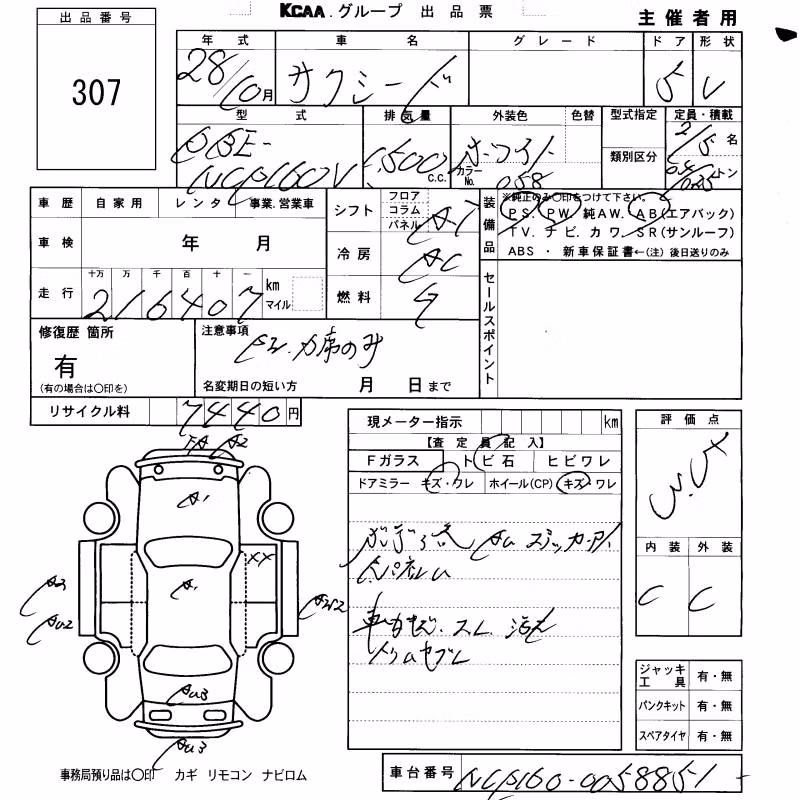 KCAA.グループ 出品票
主催者用
出品番号
307
年式 車名 グレード ドア 形状
28/10月 サクシード 5 V
型式 排気量 外装色 色替 型式指定 定員・積載
DBE-NCP160V 1,500 C.C. ホワイト カラーNo. 058 類別区分 2/5名 トン
車歴 自家用 レンタ 事業.営業車
シフト フロア コラム パネル AT
装備品 ※純正のみ〇印をつけて下さい。
PS. PW. 純AW. AB(エアバック)
TV. ナビ. カワ. SR(サンルーフ)
ABS ・ 新車保証書←(注) 後日送りのみ
車検 年 月
冷房 AC
走行 十万 万 千 百 十 一
216407 km マイル
燃料 G
セールスポイント
修復歴 箇所
有
(有の場合は〇印を)
注意事項
名変期日の短い方 月 日まで
リサイクル料 7440円
現メーター指示 km
【査定員記入】
Fガラス トビ石 ヒビワレ
ドアミラー キズ・ワレ ホイール(CP) キズ・ワレ
評価点
内装 外装
C C
FA A2
A1
XX
A1
A3
AU2
AU3
AU3
ジャッキ工具 有・無
パンクキット 有・無
スペアタイヤ 有・無
事務局預り品は〇印 カギ リモコン ナビロム
車台番号 NCP160-0058851